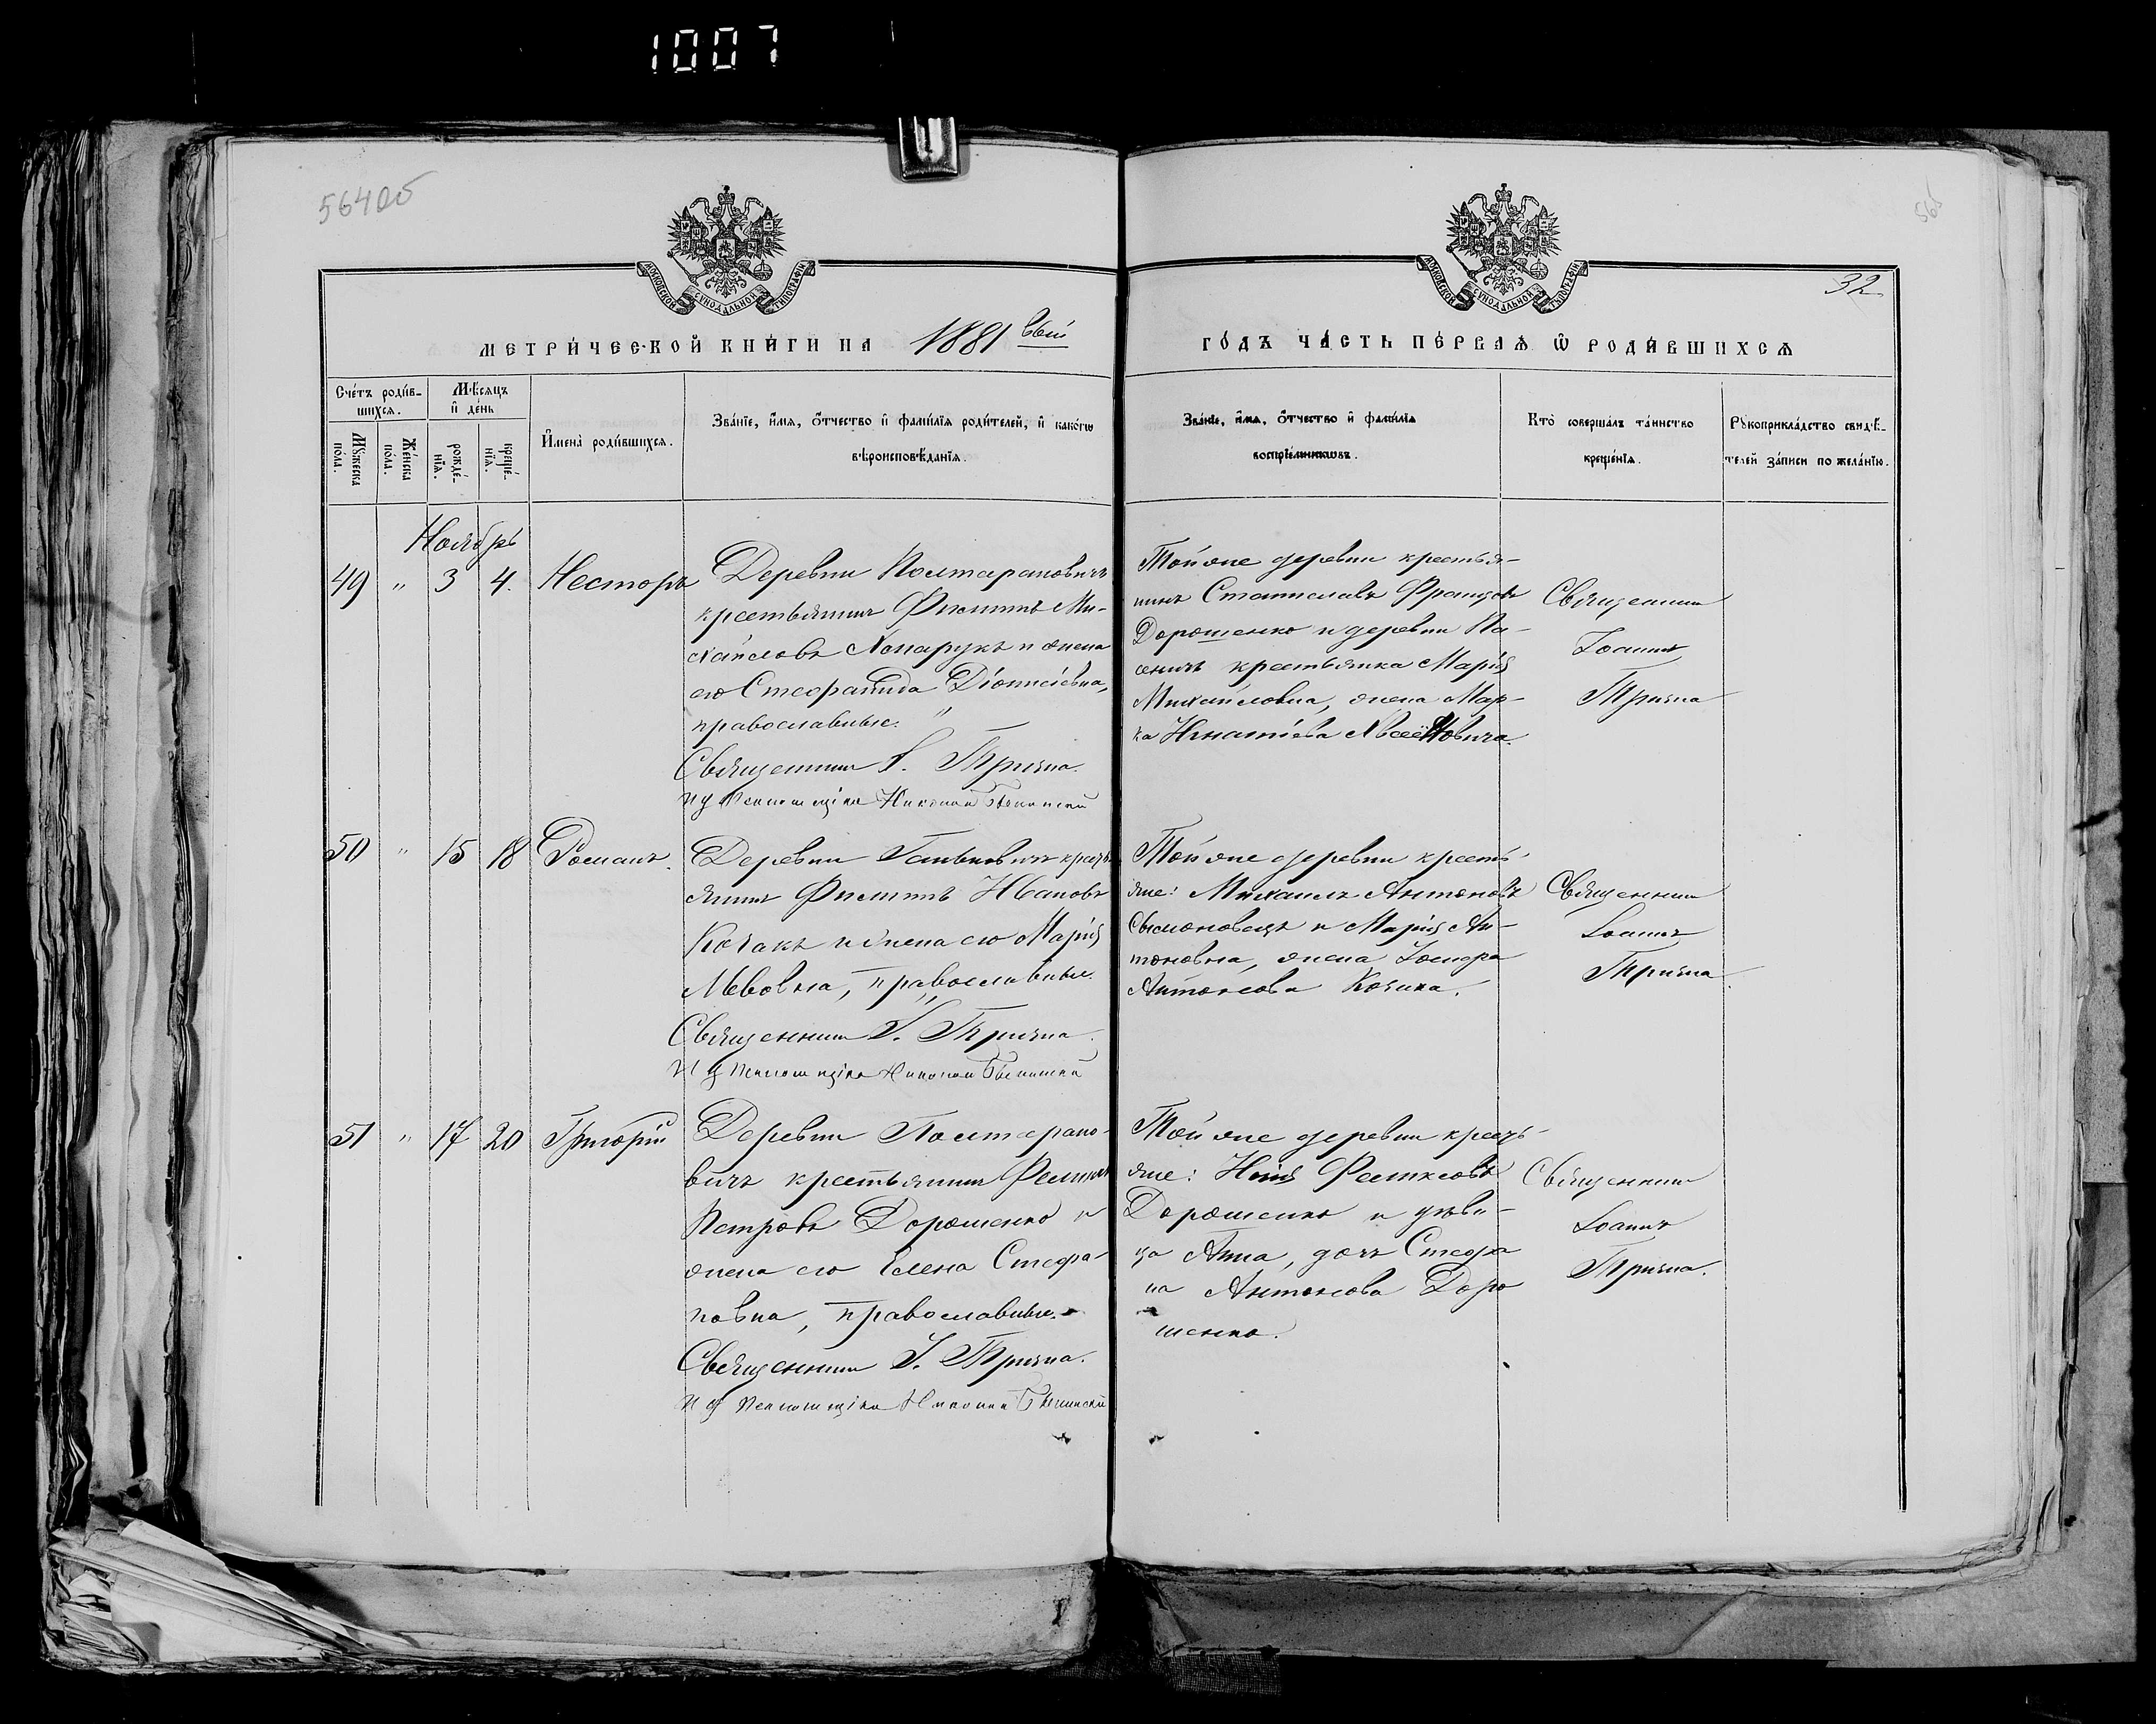 1007
564об
565
32
МОСКОВСКОЙ СУНОДАЛЬНОЙ ТИПОГРАФІИ
МОСКОВСКОЙ СУНОДАЛЬНОЙ ТИПОГРАФІИ
МЕТРИ́ЧЕСКОЙ КНИ́ГИ НА 1881 вый
ГО́ДЪ ЧА́СТЬ ПЕ́РВАЯ Ѡ РОДИ́ВШИХСЯ
Сче́тъ роди́в-
шихся.
Мѣ́сяцъ
и де́нь
Мꙋ́жеска
по́ла.
Же́нска
по́ла.
рожде́-
нїя.
креще́-
нїя.
И҆мена̀ роди́вшихся.
Зва́нїе, и҆́мя, ѻ҆́тчество и҆ фами́лїя роди́телей, и҆ како́гѡ
вѣроисповѣ́данїя.
Зва́нїе, и҆́мя, ѻ҆́тчество и҆ фами́лїя
воспрїе́мникѡвъ.
Кто̀ соверша́лъ та́инство
креще́нїя.
Рꙋкоприкла́дство свидѣ́-
телей за́писи по жела́нїю.
Ноябрь
49 " 3 4. Несторъ
Деревни Полтарановичъ
крестьянинъ Филиппъ Ми-
хайловъ Хопарукъ и жена
его Стефанида Діонисіевна,
православные.
Священникъ І. Тризна.
И д Псаломщика Николай
Той же деревни крестья-
нинъ Станиславъ Францовъ
Дорошенко и деревни Па-
сеничъ крестьянка Марія
Михайловна, жена Мар-
ка Игнатіева
Священникъ
Іоаннъ
Тризна
50 " 15 18 Романъ.
Деревни кресть-
янинъ Филиппъ Ивановъ
Козакъ и жена его Марія
Львовна, православные.
Священникъ І. Тризна.
И д Псаломщика Николай
Той же деревни кресть-
яне: Михаилъ Антоновъ
и Марія Ан-
тоновна, жена Іосифа
Антонова Козака.
Священникъ
Іоаннъ
Тризна.
51 " 17 20 Григорій
Деревни Полтарано-
вичъ крестьянинъ Феликсъ
Петровъ Дорошенко и
жена его Елена Стефа-
новна, православные.
Священникъ І. Тризна.
И д Псаломщика Николай
Той же деревни кресть-
яне: Илія Феликсовъ
Дорошенко и дѣви-
ца Анна, дочь Стефа
на Антонова Доро
шенко.
Священникъ
Іоаннъ
Тризна.